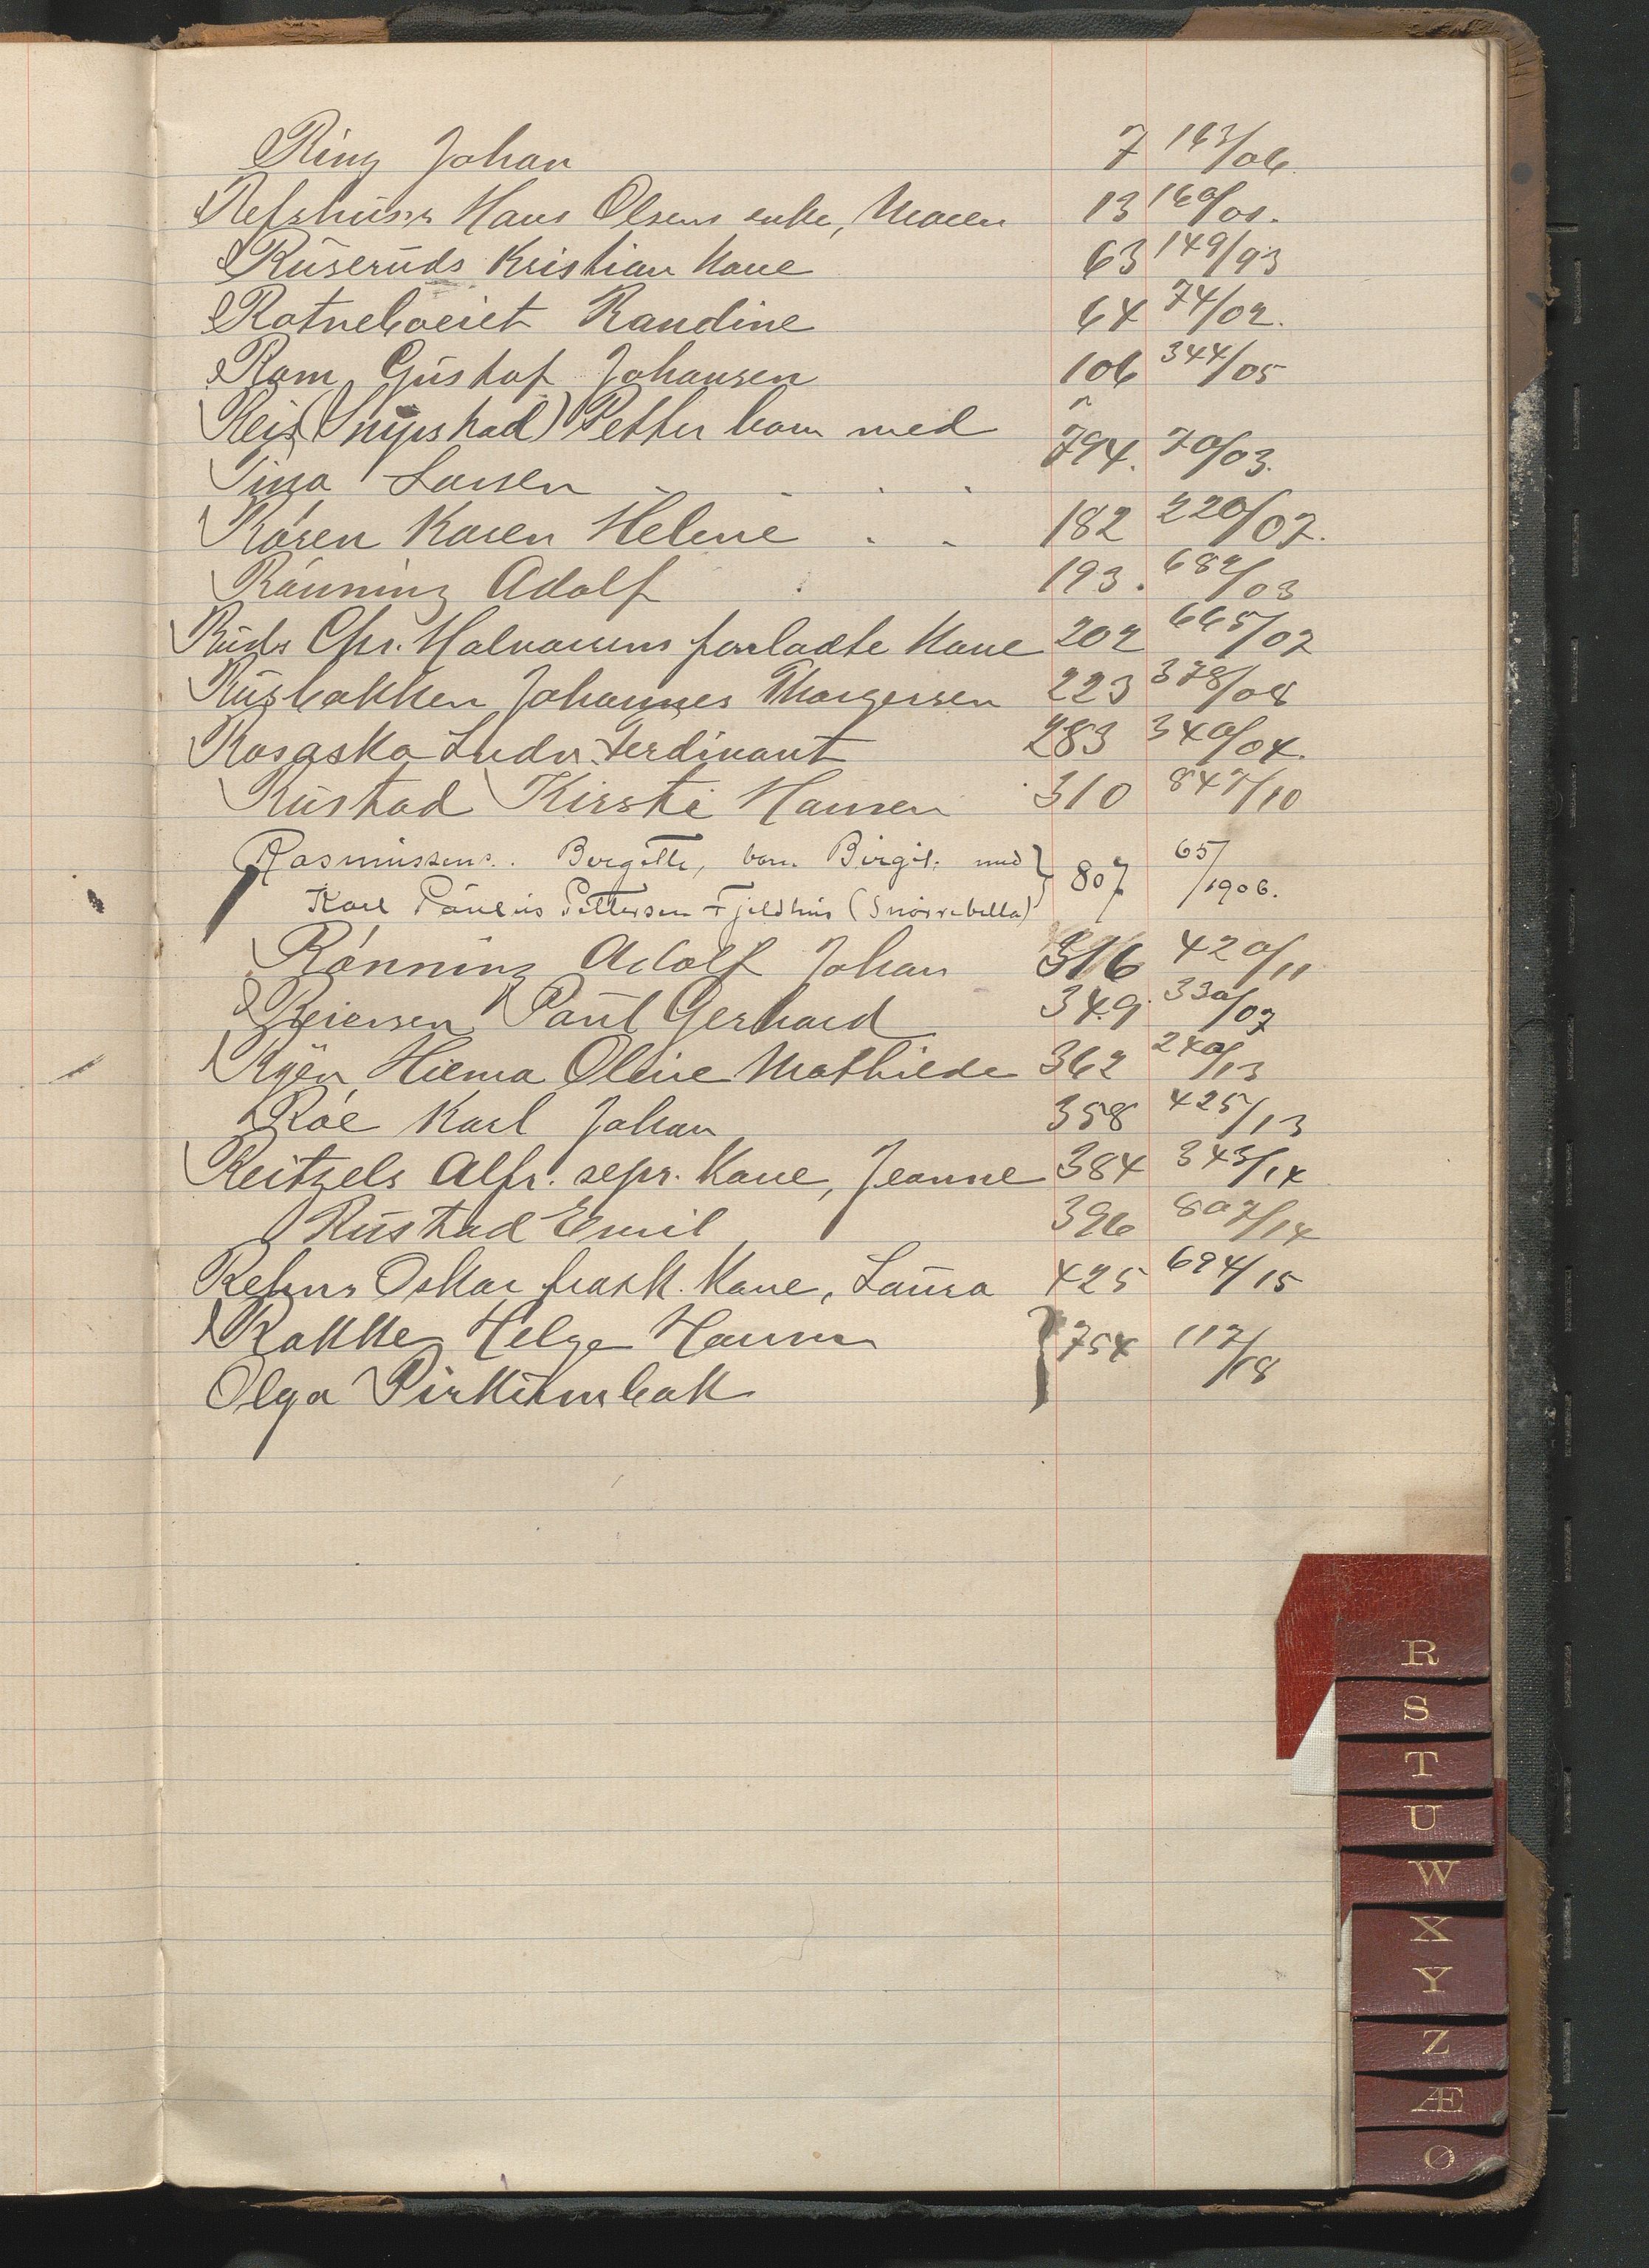 Ring Johan 7 163/06.
Refshusss Hans Olsens enke, Maren 13 160/01.
Ruseruds Kristian Kone 63 149/93
Randine 64 74/02.
Ram Gustaf Johansen 106 344/05
Reis (Snipstad) Petter barn med
Tina Larsen 794. 70/03.
Røsen Karen Helene 182 220/07.
Rønning Adolf 193. 682/03
Ruds Chr. Halvorsens forladte Kone 202 665/07
Rusbakken Johannes Thorgersen 223 378/08
Rosasko Ludv. Ferdinant 283 340/04.
Rustad Kirsti Hansen 310 847/10
Rasmussens. Bergitte, barn Birgit. med } 807 65/1906.
Karl Paulus Pettersen Fjeldhus (Snorrebella)
Rønning Adolf Johan 316 420/11
Reiersen Paul Gerhard 349. 330/07
Ryen Hilma Oline Mathilde 362 240/13
Røe Karl Johan 358 425/13
Reitzels Alfr. sepr. Kone, Jeanne 384 343/14
Rustad Emil 396 807/14
Rehns Oskar frask. Kone, Laura 425 694/15
Rakke Helge Hansen } 754 117/18
Olga
R
S
T
U
W
X
Y
Z
Æ
Ø